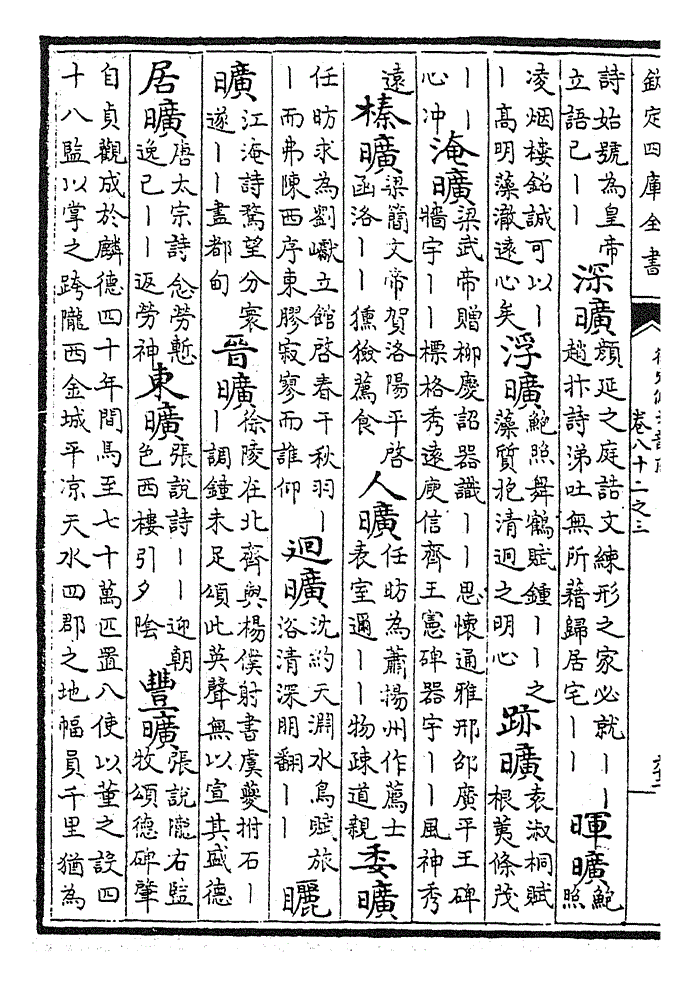 欽定四庫全書
卷八十二之三
詩始號為皇帝立語已丨丨 深曠 顔延之庭誥文練形之家必就丨丨趙抃詩涕吐無所藉歸居宅丨丨 暉曠 鮑照
凌烟樓銘誠可以丨丨高明藻澈遠心矣 浮曠 鮑照舞鶴賦鍾丨丨之藻質抱清迥之明心 跡曠 袁淑桐賦根荑條茂
丨丨心冲 淹曠 梁武帝贈柳慶詔器識丨丨思懷通雅邢邵廣平王碑牆宇丨丨標格秀遠庾信齊王憲碑器宇丨丨風神秀
遠 榛曠 梁簡文帝賀洛陽平啓函洛丨丨獯獫薦食 人曠 任昉為蕭揚州作薦士表室邇丨丨物疎道親 委曠
任昉求為劉瓛立館啓春干秋羽丨丨而弗陳西序東膠寂寥而誰仰 迴曠 沈約天淵水鳥賦旅浴清深朋翻丨丨 矖
曠 江淹詩騖望分寰隧丨丨盡都甸 晉曠 徐陵在北齊與楊僕射書虞夔拊石丨丨調鐘未足頌此英聲無以宣其盛德
居曠 唐太宗詩念勞慙逸已丨丨返勞神 東曠 張說詩丨丨迎朝色西樓引夕陰 豐曠 張說隴右監牧頌德碑肇
自貞觀成於麟德四十年間馬至七十萬匹置八使以董之設四十八監以掌之跨隴西金城平凉天水四郡之地幅員千里猶為